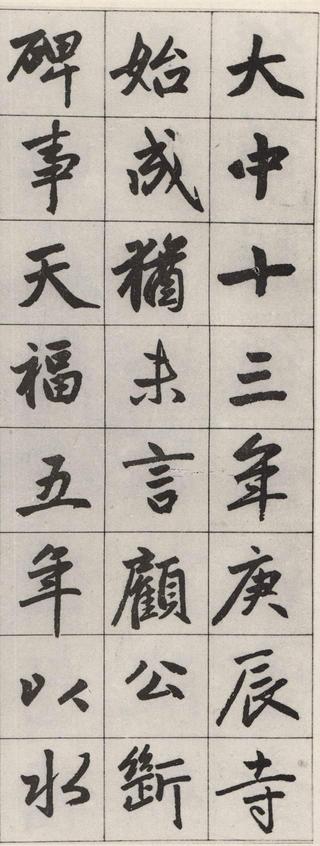 大中十三年庚辰寺
始成猶未言顧公斷
碑事天福五年以水